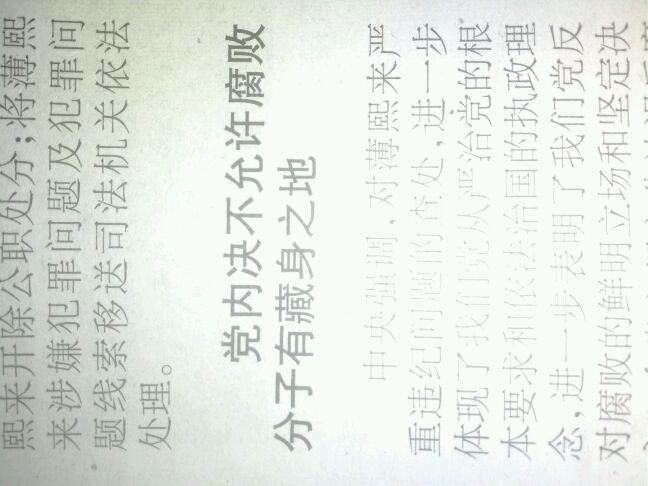 熙来开除公职处分;将薄熙
来涉嫌犯罪问题及犯罪问
题线索移送司法机关依法
处理。
党内决不允许腐败
分子有藏身之地
中央强调,对薄熙来严
重违纪问题的查处,进一步
体现了我们党从严治党的根
本要求和依法治国的执政理
念,进一步表明了我们党反
对腐败的鲜明立场和坚定决